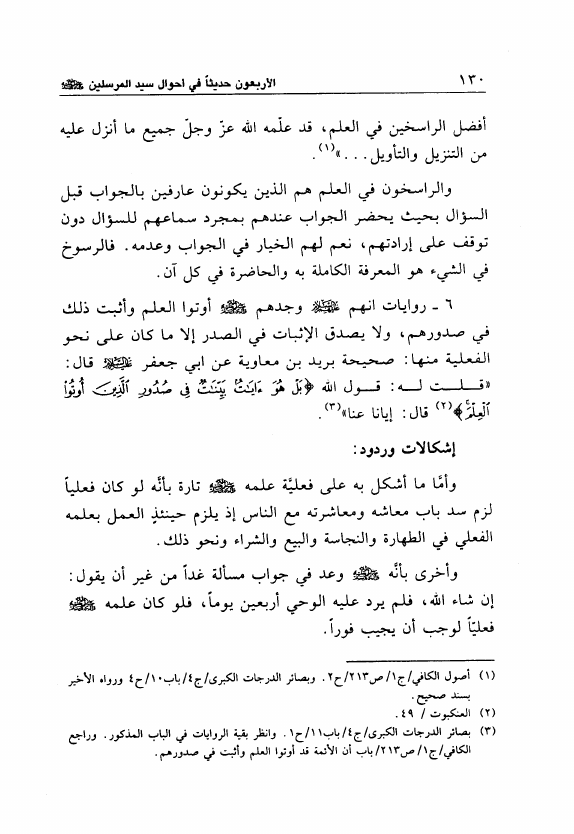 ١٣٠ الأربعون حديثاً في أحوال سيد المرسلين ﷺ
أفضل الراسخين في العلم، قد علّمه الله عزّ وجلّ جميع ما أنزل عليه
من التنزيل والتأويل...»(١).
والراسخون في العلم هم الذين يكونون عارفين بالجواب قبل
السؤال بحيث يحضر الجواب عندهم بمجرد سماعهم للسؤال دون
توقف على إرادتهم، نعم لهم الخيار في الجواب وعدمه. فالرسوخ
في الشيء هو المعرفة الكاملة به والحاضرة في كل آن.
٦ ـ روايات انهم وجدهم أوتوا العلم وأثبت ذلك
في صدورهم، ولا يصدق الإثبات في الصدر إلا ما كان على نحو
الفعلية منها: صحيحة بريد بن معاوية عن ابي جعفر قال:
«قلت له: قول الله ﴿بَلْ هُوَ ءَايَٰتٌۢ بَيِّنَٰتٌ فِي صُدُورِ ٱلَّذِينَ أُوتُوا۟
ٱلْعِلْمَ﴾(٢) قال: إيانا عنا»(٣).
إشكالات وردود:
وأمَّا ما أشكل به على فعليَّة علمه ﷺ تارة بأنَّه لو كان فعلياً
لزم سد باب معاشه ومعاشرته مع الناس إذ يلزم حينئذٍ العمل بعلمه
الفعلي في الطهارة والنجاسة والبيع والشراء ونحو ذلك.
وأخرى بأنَّه ﷺ وعد في جواب مسألة غداً من غير أن يقول:
إن شاء الله، فلم يرد عليه الوحي أربعين يوماً، فلو كان علمه ﷺ
فعليّاً لوجب أن يجيب فوراً.
(١) أصول الكافي/ج١/ص٢١٣/ح٢. وبصائر الدرجات الكبرى/ج٤/باب١٠/ح٤ ورواه الأخير
بسند صحيح.
(٢) العنكبوت / ٤٩.
(٣) بصائر الدرجات الكبرى/ج٤/باب١١/ح١. وانظر بقية الروايات في الباب المذكور. وراجع
الكافي/ج١/ص٢١٣/باب أن الأئمة قد أوتوا العلم وأثبت في صدورهم.